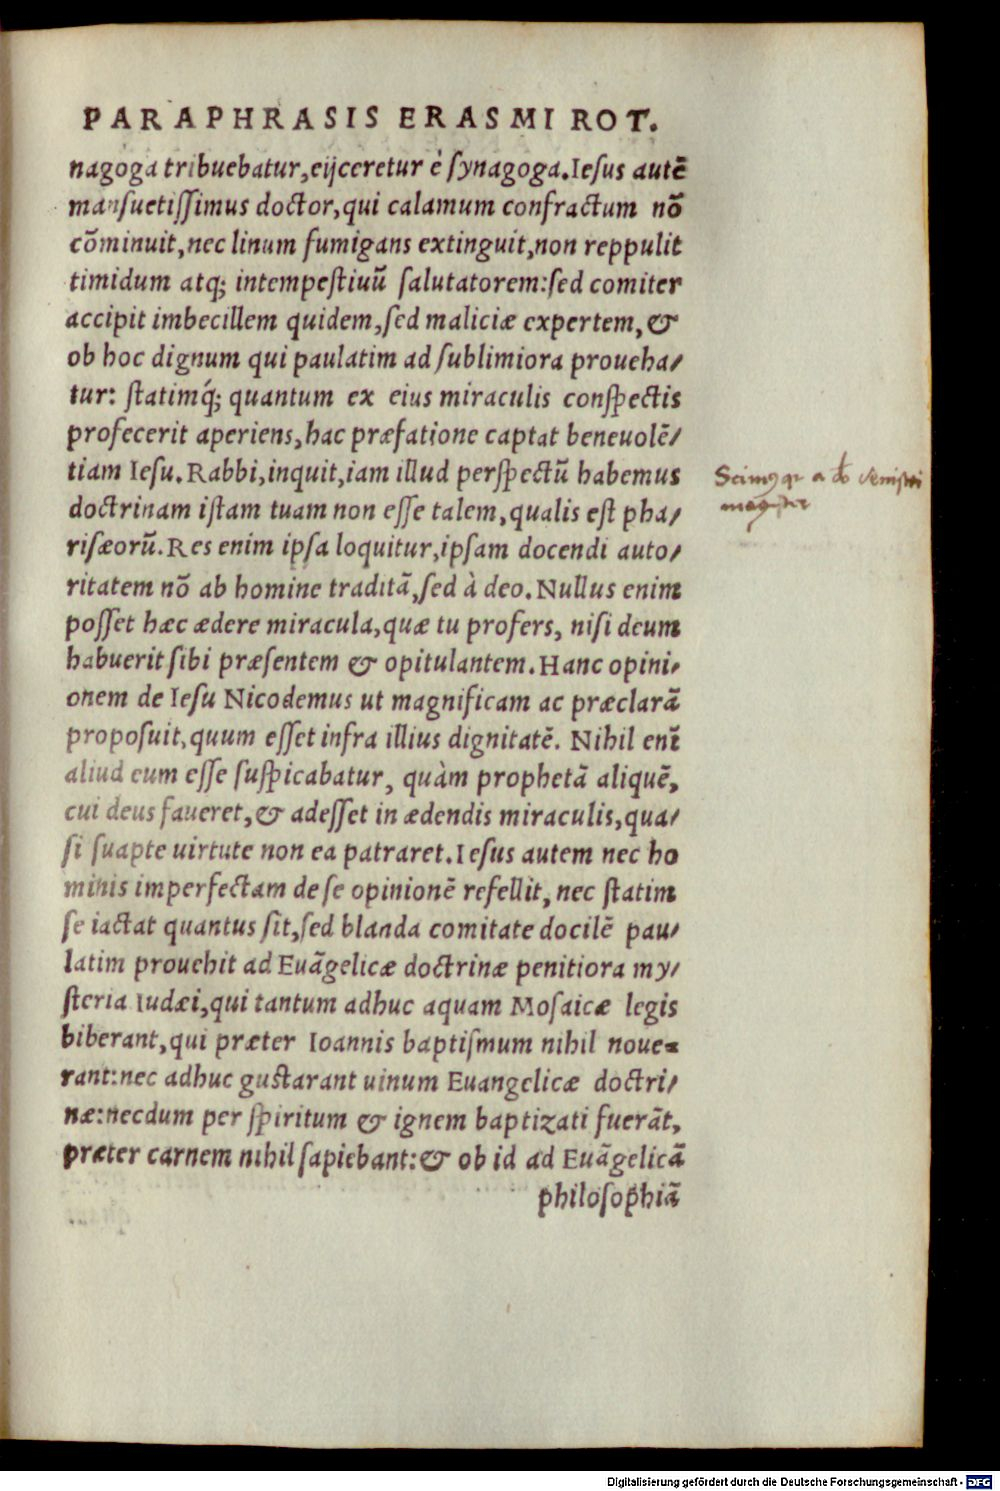 PARAPHRASIS ERASMI ROT.
nagoga tribuebatur, eijceretur è ſynagoga. Ieſus autē
manſuetiſſimus doctor, qui calamum confractum nō
cōminuit, nec linum fumigans extinguit, non reppulit
timidum atq; intempeſtiuū ſalutatorem: ſed comiter
accipit imbecillem quidem, ſed maliciæ expertem, &
ob hoc dignum qui paulatim ad ſublimiora proueha/
tur: ſtatimq́; quantum ex eius miraculis conſpectis
profecerit aperiens, hac præfatione captat beneuolē/
tiam Ieſu. Rabbi, inquit, iam illud perſpectū habemus
doctrinam iſtam tuam non eſſe talem, qualis eſt pha/
riſæorū. Res enim ipſa loquitur, ipſam docendi auto/
ritatem nō ab homine traditā, ſed à deo. Nullus enim
poſſet hæc ædere miracula, quæ tu profers, niſi deum
habuerit ſibi præſentem & opitulantem. Hanc opini/
onem de Ieſu Nicodemus ut magnificam ac præclarā
propoſuit, quum eſſet infra illius dignitatē. Nihil enī
aliud eum eſſe ſuſpicabatur, quàm prophetā aliquē,
cui deus faueret, & adeſſet in ædendis miraculis, qua/
ſi ſuapte uirtute non ea patraret. Ieſus autem nec ho
minis imperfectam de ſe opinionē refellit, nec ſtatim
ſe iactat quantus ſit, ſed blanda comitate docilē pau/
latim prouehit ad Euāgelicæ doctrinæ penitiora my/
ſteria Iudæi, qui tantum adhuc aquam Moſaicæ legis
biberant, qui præter Ioannis baptiſmum nihil noue=
rant: nec adhuc guſtarant uinum Euangelicæ doctri/
næ: necdum per ſpiritum & ignem baptizati fuerāt,
præter carnem nihil ſapiebant: & ob id ad Euāgelicā
philoſophiā
Scimus a do veniſti
magiſter
Digitalisierung gefördert durch die Deutsche Forschungsgemeinschaft - DFG